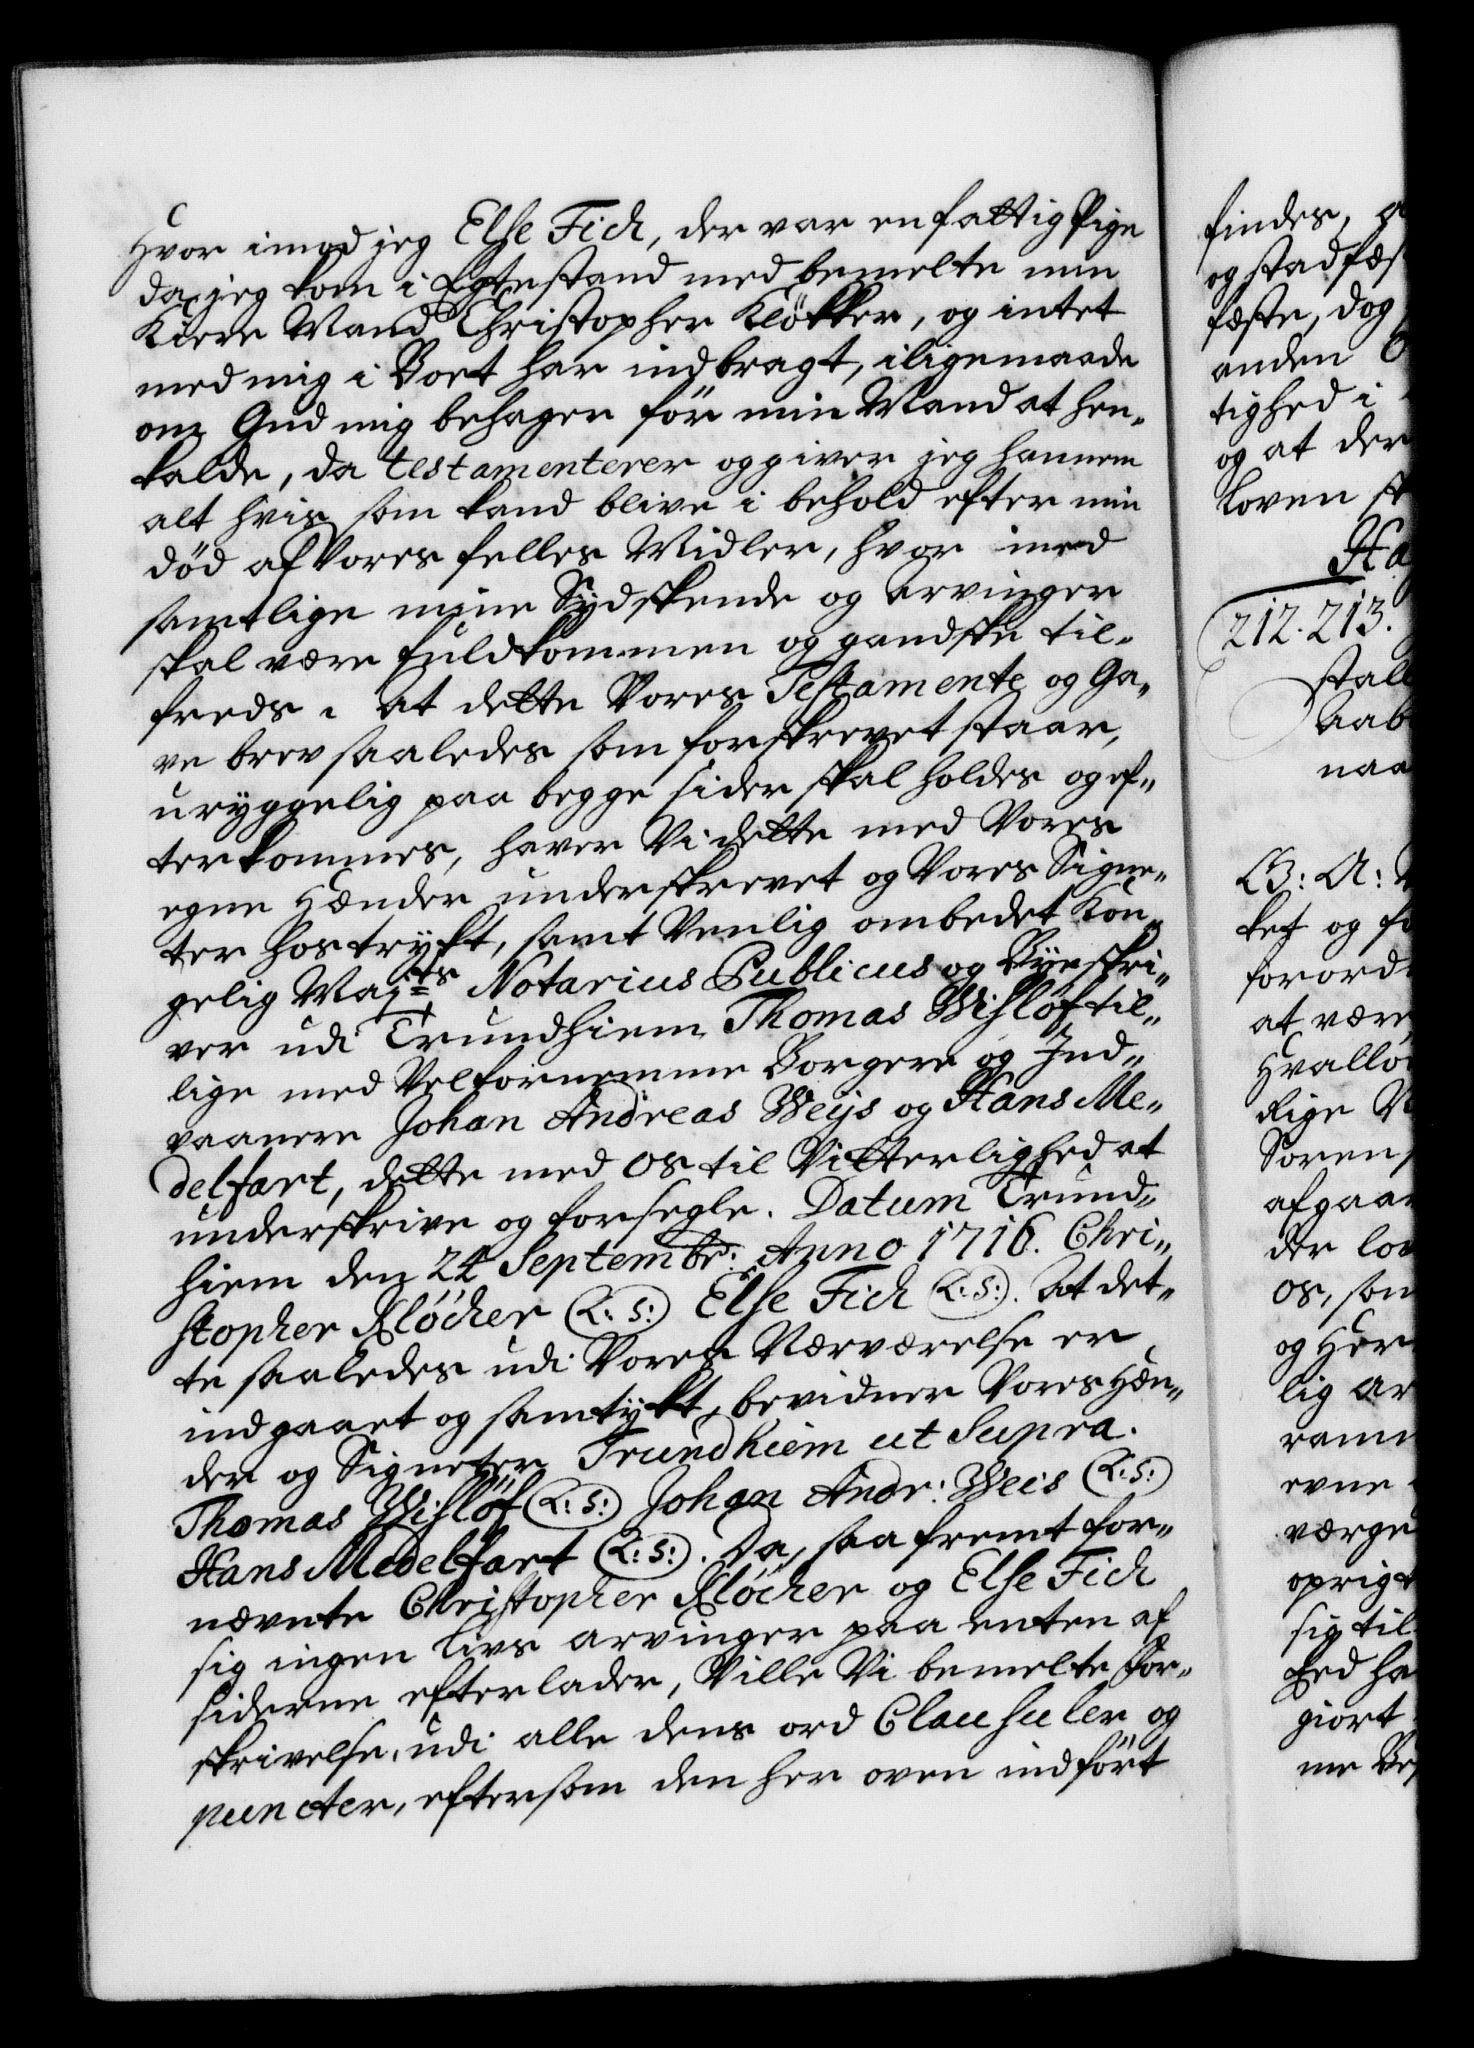 Hvor imod jeg Else Fich, der var en fattig Pige
da jeg kom i Egtestand med bemelte min
Kiere Mand Christopher Klökker, og intet
med mig i Boet har indbragt, iligemaade
om Gud mig behager för min Mand at hen„
kalde, da testamenterer og giver jeg hannem
alt hvis som kand blive i behold efter min
död af Vores felles Midler, hvor med
samtlige mine Sydskende og Arvinger
skal være fuldkommen og gandske til„
freds. At dette Vores Testamente og Ga„
ve brev saaledes som forskrevet staar,
uryggelig paa begge sider skal holdes og ef„
terkommes, haver Vi dette med Vores
egne Hænder underskrevet og Vores Signe„
ter hostrykt, samt Venlig ombedet Kon„
gelig Majts Notarius Publicus og Byeskri„
ver udi Trundhiem Thomas Wislöf til„
lige med Velfornemme Borgere og Ind„
vaanere Johan Andreas Weijs og Hans Me„
delfart, dette med os til Vitterlighed at
underskrive og forsegle. Datum Trund„
hiem den 24 Septembr: Anno 1716. Chri„
stopher Klöcher (L: S:) Else Fich (L: S:). At det„
te saaledes udi Vores Nærværelse er
indgaaet og samtykt, bevidner Vores Hæn„
der og Signeter Trundhiem ut Supra.
Thomas Wislöf (L: S:) Johan Andr: Weis (L: S:)
Hans Medelfart (L: S:). Da, saafremt for„
nævnte Christopher Klöcher og Else Fich
sig ingen livs arvinger paa enten af
siderne efterlader, Ville Vi bemelte For„
skrivelse, udi alle dens ord Clausuler og
puncter, eftersom den her oven indfört
findes,
og stadfæs
fæste, dog
anden
tighed i
og at der
loven
Ha
212. 213.
stall
Aab
naa
B: A:
ket og
forord
at være
Hvallö
Rige
Sören
afgaa
der lov
os, som
og Her
lig Ar
ramm
evne
værge
oprigt
sig til
Eed ha
giort
me Bes